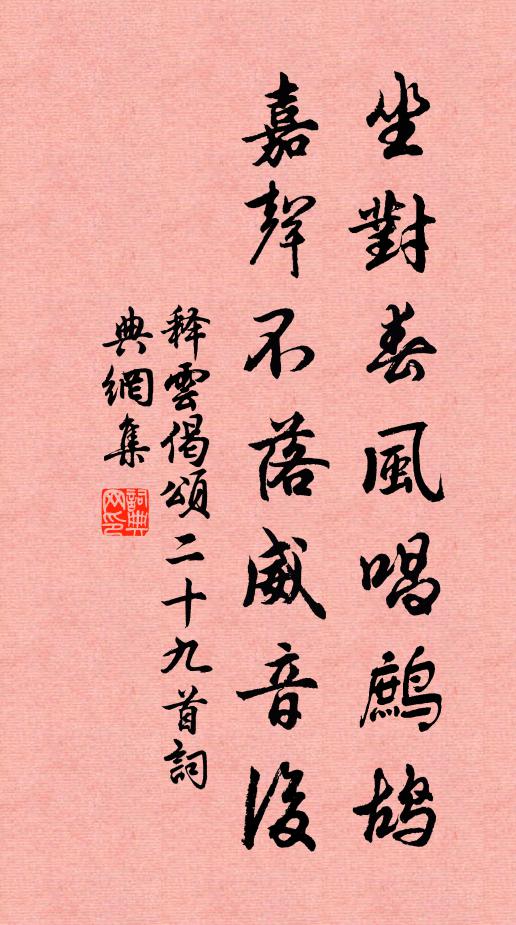 坐對春風唱鷓鴣
嘉聲不落威音後
释雲偈頌二十九首詞
典網集
詞典网印